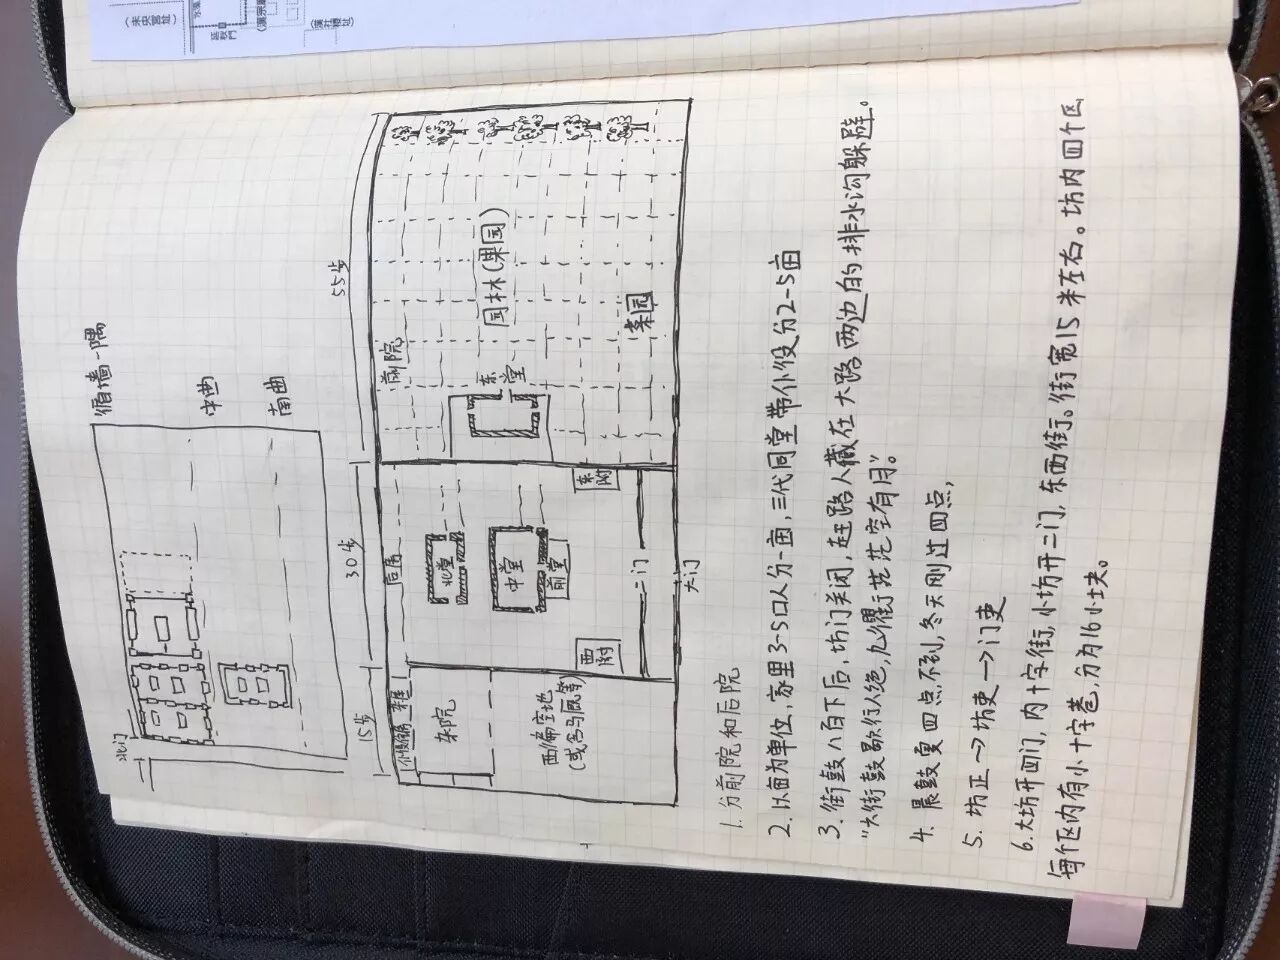 (未央宫址)
循墙一隅
北门
中曲
南曲
15步
30步
55步
后院
前院
杂院
北堂
中堂
前堂
东堂
园林(果园)
菜园
西偏空地
(或含马厩等)
西附
东附
二门
大门
1. 分前院和后院
2. 以亩为单位,家里3-5口人分一亩,三代同堂带仆役分2-5亩
3. 街鼓八百下后,坊门关闭,赶路人藏在大路两边的排水沟躲避。
“六街鼓歇行人绝,九衢茫茫空有月”。
4. 晨鼓夏四点不到,冬天刚过四点,
5. 坊正→坊吏→门吏
6. 大坊开四门,内十字街,小坊开二门,东西街。街宽15米左右。坊内四个区
每个区内有小十字巷,分为16小块。